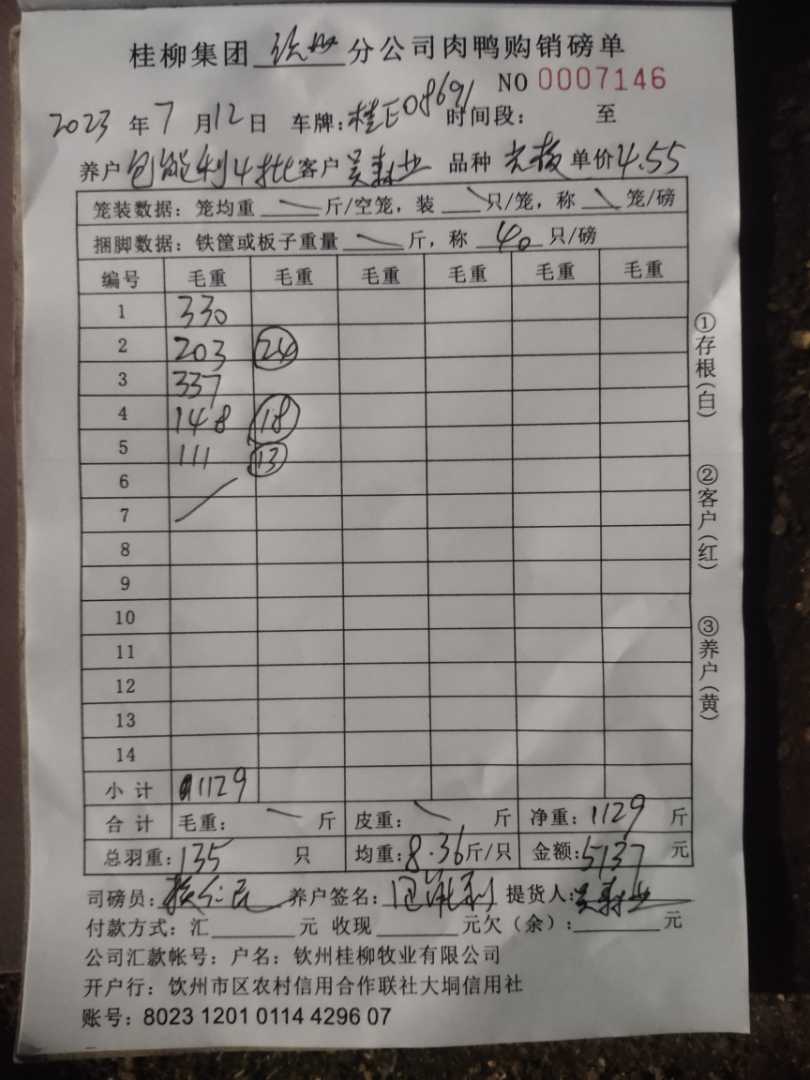 桂柳集团 钦州 分公司肉鸭购销磅单
NO 0007146
2023 年 7 月 12 日 车牌：桂E08691 时间段： 至
养户 包能利4批 客户 吴森业 品种 光板 单价 4.55
笼装数据：笼均重 斤/空笼，装 只/笼，称 笼/磅
捆脚数据：铁筐或板子重量 斤，称 40 只/磅
编号 毛重 毛重 毛重 毛重 毛重 毛重
1 330
2 203 24
3 337
4 148 18
5 111 13
6
7
8
9
10
11
12
13
14
小 计 1129
合 计 毛重： 斤 皮重： 斤 净重：1129 斤
总羽重：135 只 均重：8.36 斤/只 金额：5137 元
司磅员： 养户签名：包能利 提货人：吴森业
付款方式：汇 元 收现 元欠（余）： 元
公司汇款帐号：户名：钦州桂柳牧业有限公司
开户行：钦州市区农村信用合作联社大垌信用社
账号：8023 1201 0114 4296 07
①存根（白）
②客户（红）
③养户（黄）